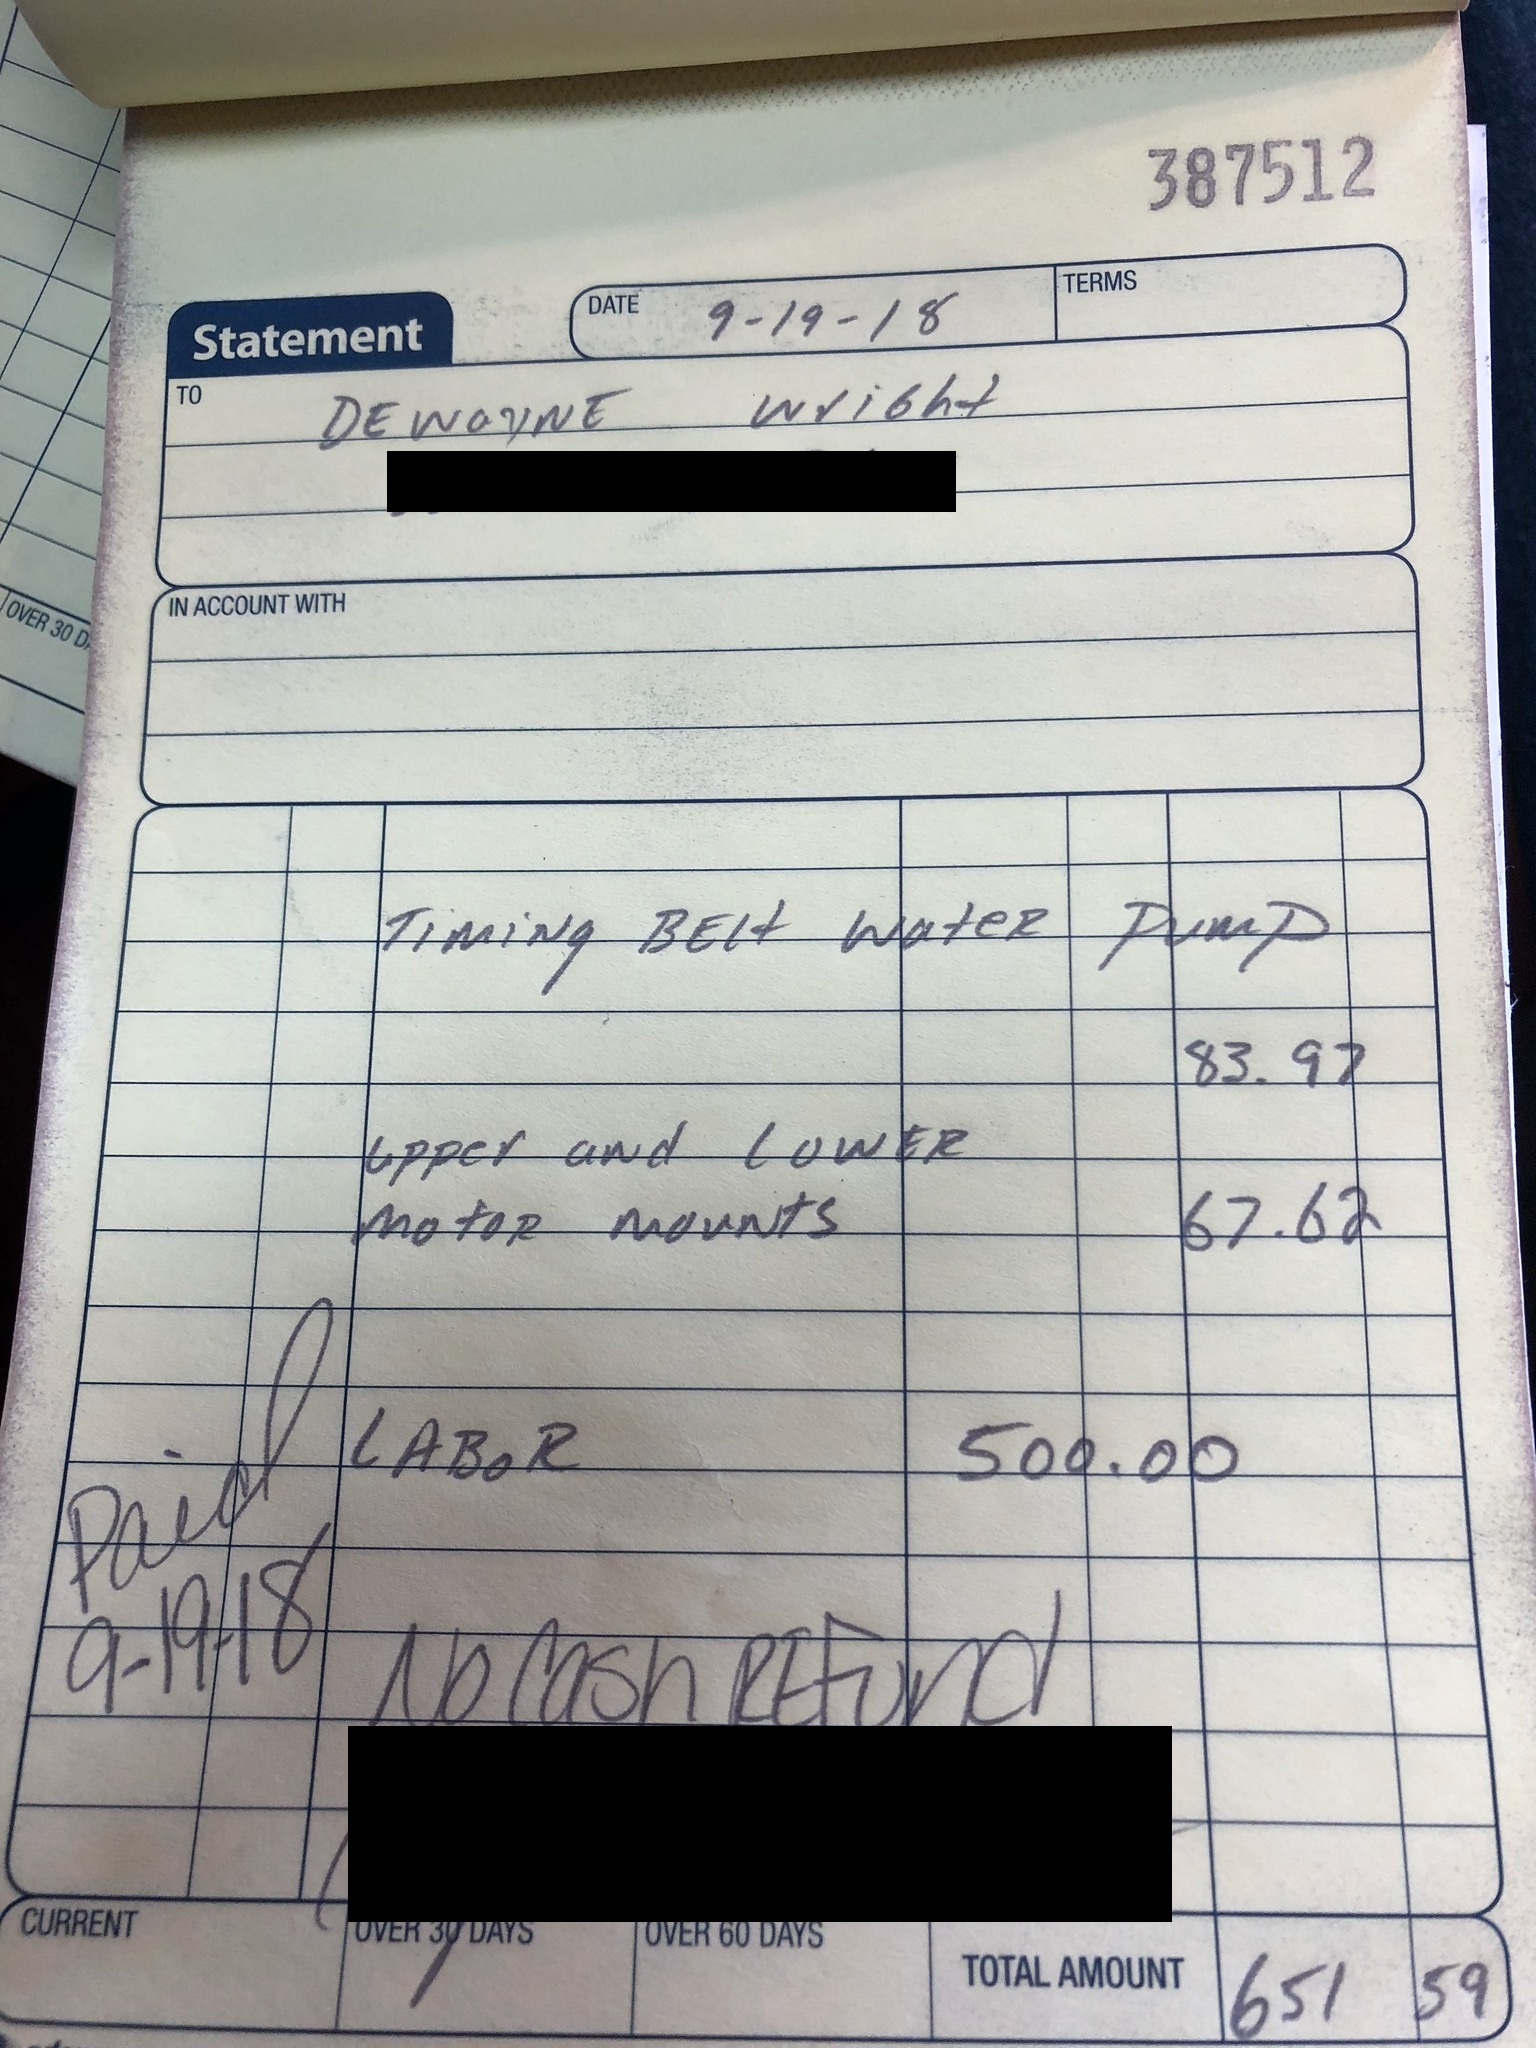 387512
Statement
DATE 9-19-18 TERMS
TO DEWayNE wright
IN ACCOUNT WITH
OVER 30 DA
Timing BELt WateR PumP
83.97
upper and LOWER
motoR mountS 67.62
LABoR 500.00
Paid
9-19-18
No Cash REFund
CURRENT OVER 30 DAYS OVER 60 DAYS TOTAL AMOUNT 651 59